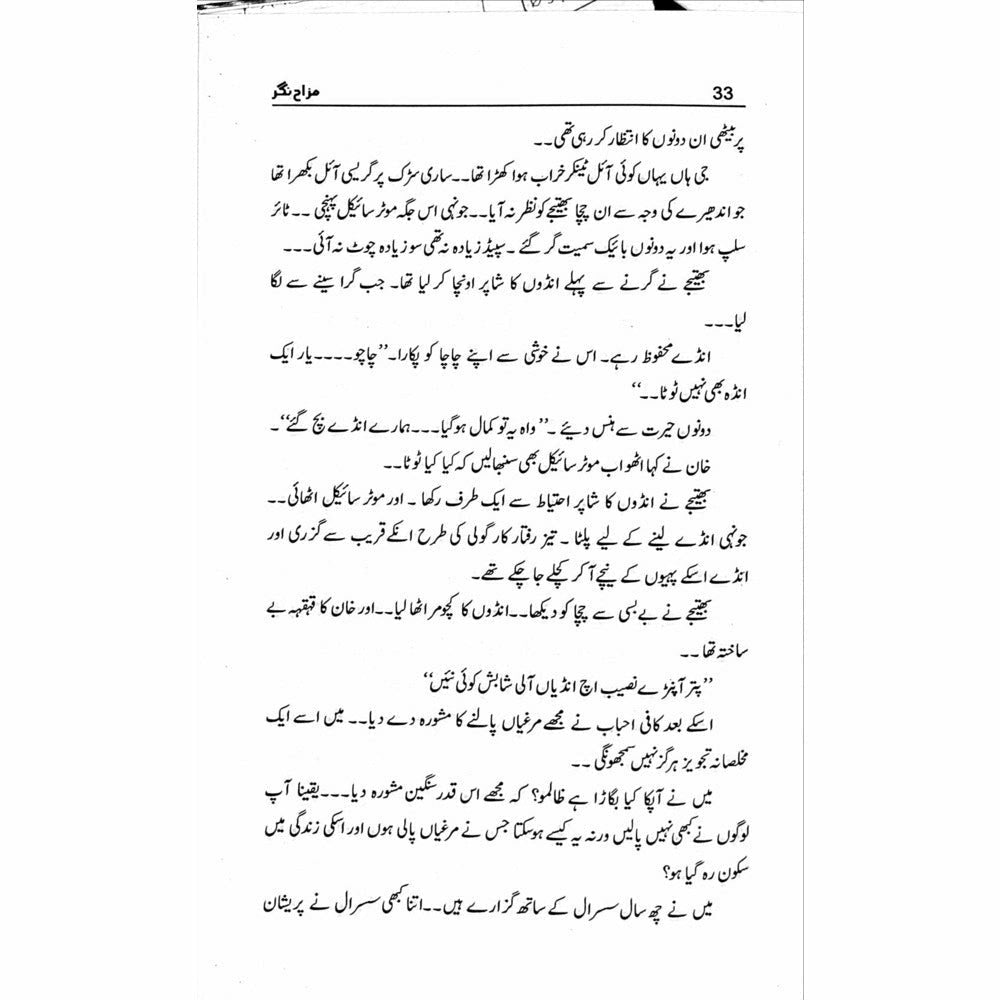 33 مزاح نگر
پر بیٹھی ان دونوں کا انتظار کر رہی تھی۔۔
جی ہاں یہاں کوئی آئل ٹینکر خراب ہوا کھڑا تھا۔۔ساری سڑک پر گریسی آئل بکھرا تھا
جو اندھیرے کی وجہ سے ان چچا بھتیجے کو نظر نہ آیا۔۔جونہی اس جگہ موٹر سائیکل پہنچی ۔۔ ٹائر
سلپ ہوا اور یہ دونوں بائیک سمیت گر گئے ۔ سپیڈ زیادہ نہ تھی سو زیادہ چوٹ نہ آئی۔۔۔
بھتیجے نے گرنے سے پہلے انڈوں کا شاپر اونچا کر لیا تھا۔ جب گرا سینے سے لگا
لیا۔۔۔
انڈے محفوظ رہے۔ اس نے خوشی سے اپنے چاچا کو پکارا۔’’چاچو۔۔۔۔یار ایک
انڈہ بھی نہیں ٹوٹا۔۔‘‘
دونوں حیرت سے ہنس دیئے ۔’’ واہ یہ تو کمال ہو گیا۔۔۔ہمارے انڈے بچ گئے‘‘۔
خان نے کہا اٹھو اب موٹر سائیکل بھی سنبھالیں کہ کیا کیا ٹوٹا۔۔
بھتیجے نے انڈوں کا شاپر احتیاط سے ایک طرف رکھا ۔ اور موٹر سائیکل اٹھائی۔۔
جونہی انڈے لینے کے لیے پلٹا ۔ تیز رفتار کار گولی کی طرح انکے قریب سے گزری اور
انڈے اسکے پہیوں کے نیچے آ کر کچلے جا چکے تھے۔
بھتیجے نے بے بسی سے چچا کو دیکھا۔۔انڈوں کا کچومر اٹھا لیا۔۔اور خان کا قہقہہ بے
ساختہ تھا ۔۔
’’پتر آپنڑے نصیب اچ انڈیاں آلی شابش کوئی نئیں‘‘
اسکے بعد کافی احباب نے مجھے مرغیاں پالنے کا مشورہ دے دیا۔۔ میں اسے ایک
مخلصانہ تجویز ہرگز نہیں سمجھونگی ۔۔
میں نے آپکا کیا بگاڑا ہے ظالمو؟ کہ مجھے اس قدر سنگین مشورہ دیا۔۔۔یقینا آپ
لوگوں نے کبھی نہیں پالیں ورنہ یہ کیسے ہوسکتا جس نے مرغیاں پالی ہوں اور اسکی زندگی میں
سکون رہ گیا ہو؟
میں نے چھ سال سسرال کے ساتھ گزارے ہیں۔۔اتنا کبھی سسرال نے پریشان